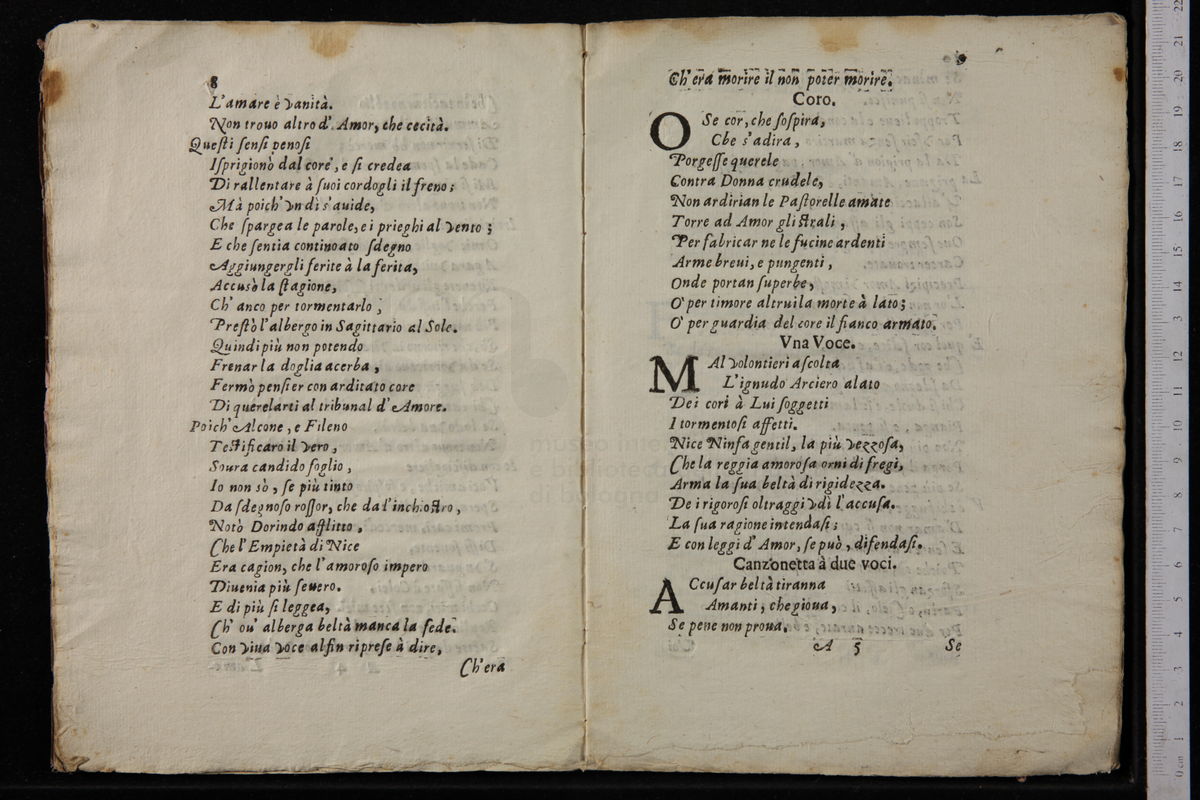 8
L'amare è vanità.
Non trouo altro d'Amor, che cecità.
Questi sensi penosi
Isprigionò dal core, e si credea
Di rallentare à suoi cordogli il freno;
Mà poich' vn dì s'auide,
Che spargea le parole, e i prieghi al vento;
E che sentia continoato sdegno
Aggiungergli ferite à la ferita,
Accusò la stagione,
Ch' anco per tormentarlo,
Prestò l'albergo in Sagittario al Sole.
Quindi più non potendo
Frenar la doglia acerba,
Fermò pensier con arditato core
Di querelarti al tribunal d'Amore.
Poich' Alcone, e Fileno
Testificaro il vero,
Soura candido foglio,
Io non sò, se più tinto
Da sdegnoso rossor, che dal'inchiostro,
Notò Dorindo afflitto.
Che l'Empietà di Nice
Era cagion, che l'amoroso impero
Diuenia più seuero.
E di più si leggea,
Ch' ou' alberga beltà manca la fede.
Con viua voce alfin riprese à dire,
Ch'era
Ch'era morire il non poter morire.
Coro.
O Se cor, che sospira,
Che s'adira,
Porgesse querele
Contra Donna crudele,
Non ardirian le Pastorelle amate
Torre ad Amor gli strali,
Per fabricar ne le fucine ardenti
Arme breui, e pungenti,
Onde portan superbe,
O' per timore altrui la morte à lato;
O' per guardia del core il fianco armato.
Vna Voce.
MAl volontieri ascolta
L'ignudo Arciero alato
De i cori à Lui soggetti
I tormentosi affetti.
Nice Ninfa gentil, la più vezzosa,
Che la reggia amorosa orni di fregi,
Arma la sua beltà di rigidezza.
De i rigorosi oltraggi vdì l'accusa.
La sua ragione intendasi;
E con leggi d'Amor, se può, difendasi.
Canzonetta à due voci.
ACcusar beltà tiranna
Amanti, che gioua,
Se pene non proua.
A 5
Se